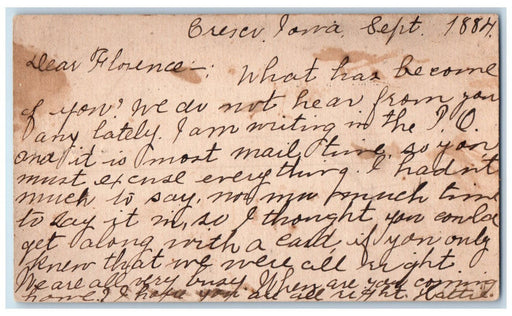 Cresco, Iowa, Sept. 1884
Dear Florence—: What has become
of you? We do not hear from you
any lately. I am writing in the P. O.
and it is most mail time so you
must excuse everything. I hadn't
much to say, nor much time
to say it in, so I thought you could
get along with a card if you only
knew that we were all right.
We are all very busy. When are you coming
home? I hope you are all right. Hattie.